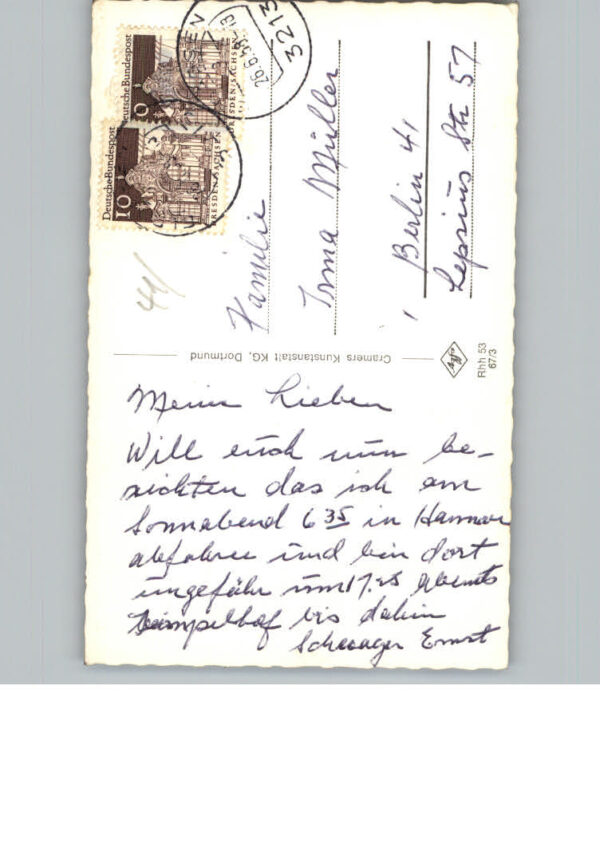 Deutsche Bundespost
10
DRESDEN-SACHSEN
Deutsche Bundespost
10
DRESDEN-SACHSEN
3213
26.6.
44/
Familie
Irma Müller
Berlin 41
Lepsius Str 57
Cramers Kunstanstalt KG, Dortmund
Rhh 53
67/3
Meine Lieben
Will euch nun be-
richten das ich am
Sonnabend 6 35 in Hannover
abfahre und bin dort
ungefähr um 17. abends
bis dahin
Schwager Ernst